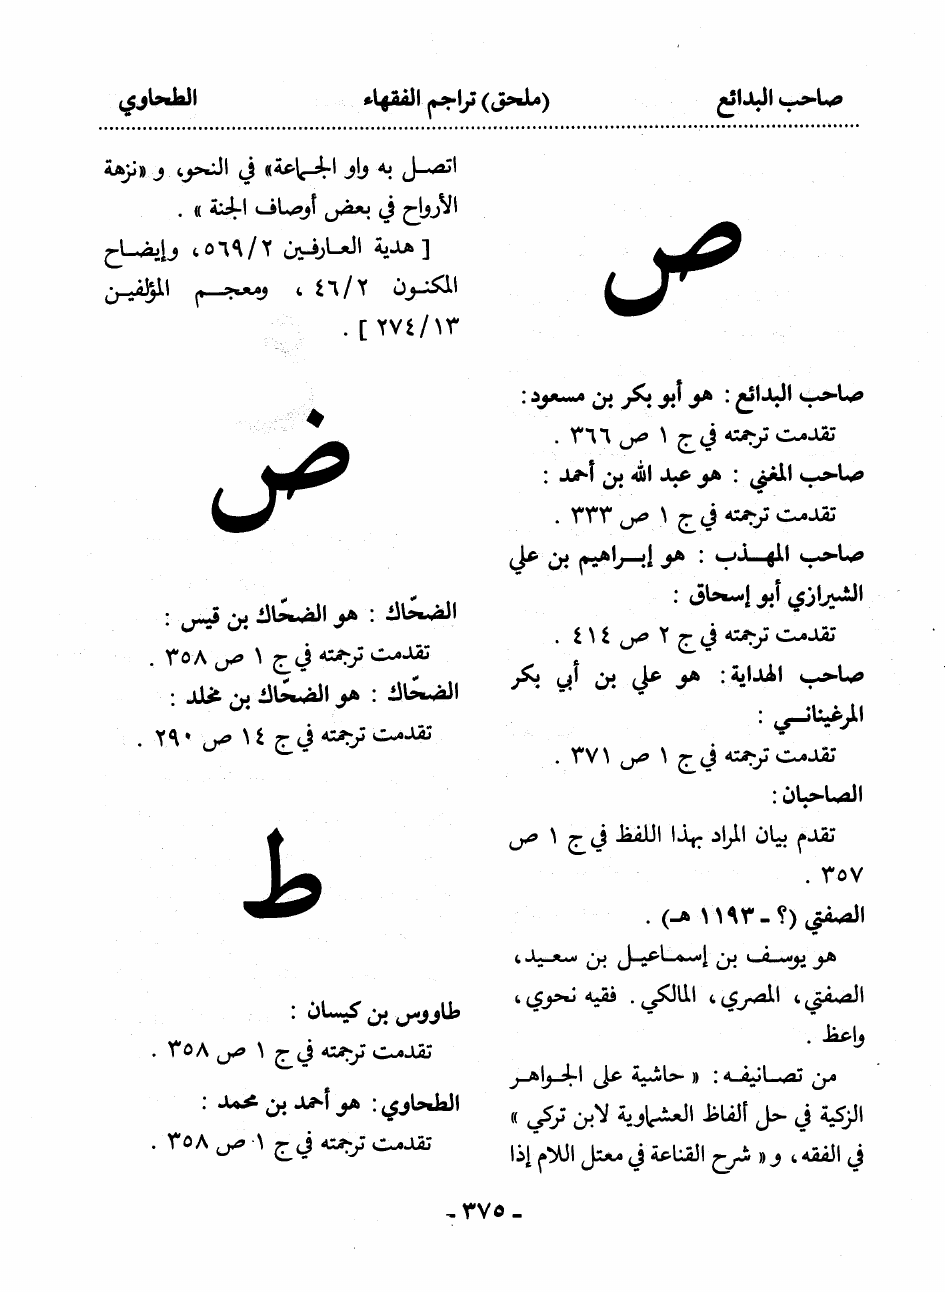 صاحب البدائع (ملحق) تراجم الفقهاء الطحاوي
ص
صاحب البدائع : هو أبو بكر بن مسعود:
تقدمت ترجمته في ج ١ ص ٣٦٦ .
صاحب المغني : هو عبد الله بن أحمد :
تقدمت ترجمته في ج ١ ص ٣٣٣ .
صاحب المهـذب : هو إبـراهيم بن علي
الشيرازي أبو إسحاق :
تقدمت ترجمته في ج ٢ ص ٤١٤ .
صاحب الهداية: هو علي بن أبي بكر
المرغينانـي :
تقدمت ترجمته في ج ١ ص ٣٧١ .
الصاحبان :
تقدم بيان المراد بهذا اللفظ في ج ١ ص
٣٥٧ .
الصفتي (؟ - ١١٩٣ هـ) .
هو يوسف بن إسماعيل بن سعيد،
الصفتي، المصري، المالكي. فقيه نحوي،
واعظ .
من تصانيفه: « حاشية على الجواهر
الزكية في حل ألفاظ العشماوية لابن تركي »
في الفقه، و« شرح القناعة في معتل اللام إذا
اتصل به واو الجماعة» في النحو، و «نزهة
الأرواح في بعض أوصاف الجنة » .
[ هدية العارفين ٢/ ٥٦٩، وإيضاح
المكنون ٢/ ٤٦ ، ومعجم المؤلفين
١٣/ ٢٧٤ ] .
ض
الضحّاك : هو الضحّاك بن قيس :
تقدمت ترجمته في ج ١ ص ٣٥٨ .
الضحّاك : هو الضحّاك بن مخلد :
تقدمت ترجمته في ج ١٤ ص ٢٩٠ .
ط
طاووس بن كيسان :
تقدمت ترجمته في ج ١ ص ٣٥٨ .
الطحاوي: هو أحمد بن محمد :
تقدمت ترجمته في ج ١ ص ٣٥٨ .
- ٣٧٥ -